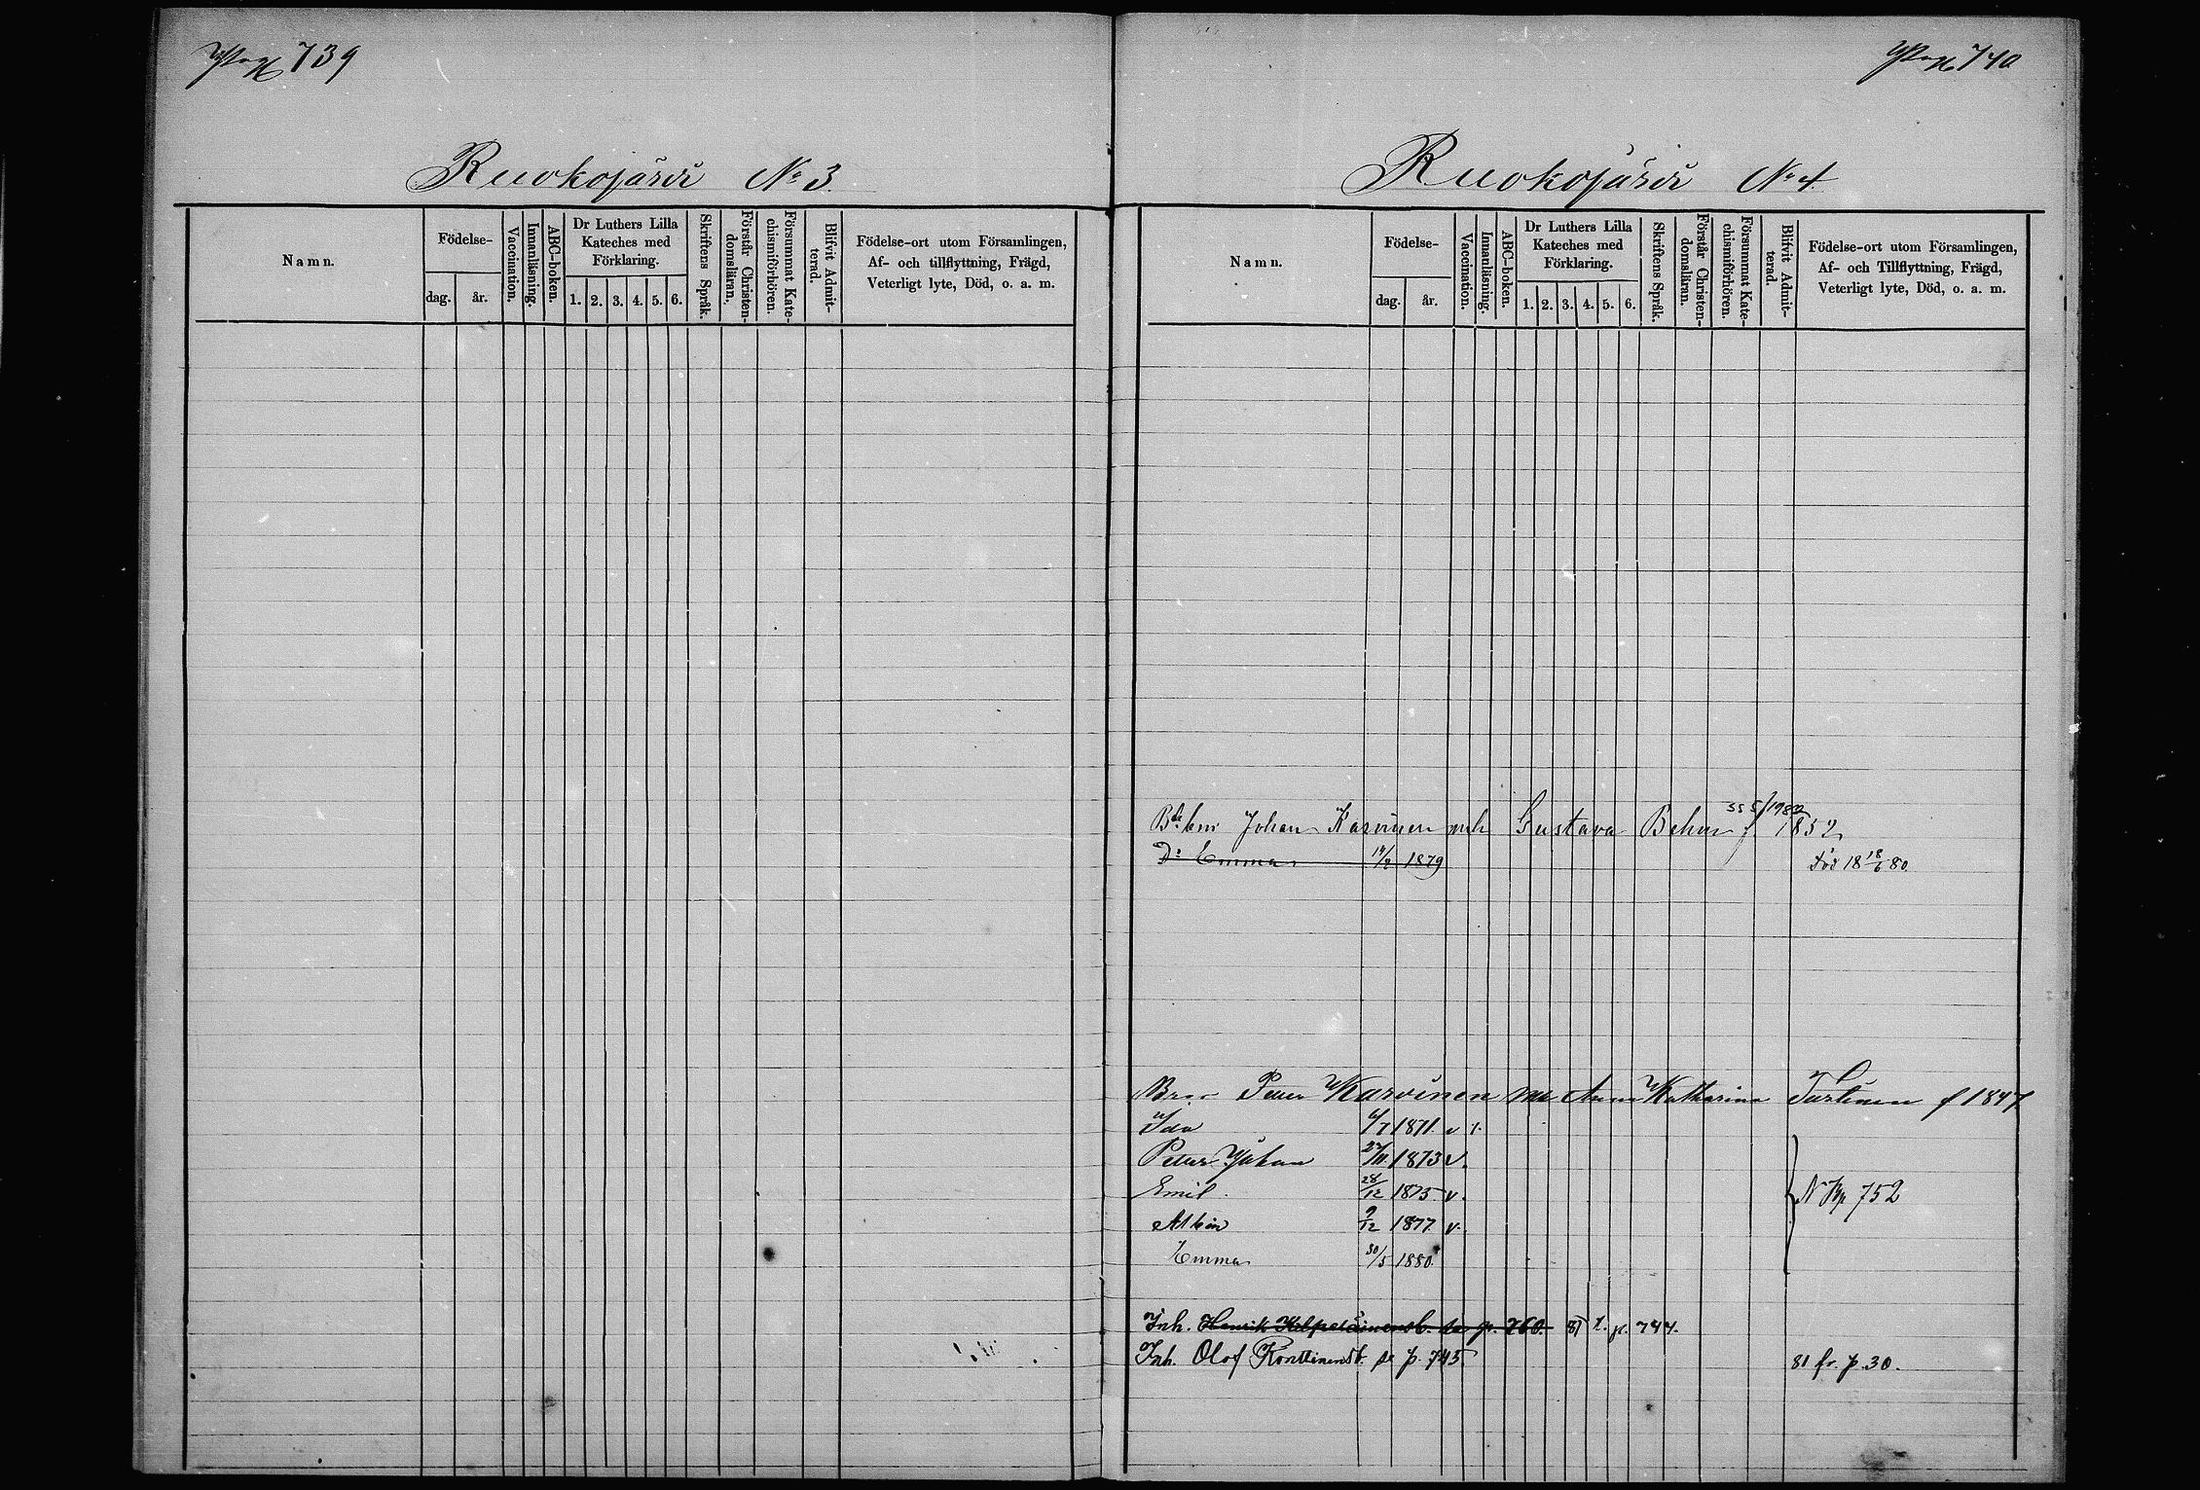 Pag 739
Ruokojärvi No 3.
Namn.
Födelse-
dag.
år.
Vaccination.
Innanläsning.
ABC-boken.
Dr Luthers Lilla
Kateches med
Förklaring.
1. 2. 3. 4. 5. 6.
Skriftens Språk.
Förstår Christen-
domsläran.
Försummat Kate-
chismiförhören.
Blifvit Admit-
terad.
Födelse-ort utom Församlingen,
Af- och tillflyttning, Frägd,
Veterligt lyte, Död, o. a. m.
Pag 740
Ruokojärvi No 4.
Namn.
Födelse-
dag.
år.
Vaccination.
Innanläsning.
ABC-boken.
Dr Luthers Lilla
Kateches med
Förklaring.
1. 2. 3. 4. 5. 6.
Skriftens Språk.
Förstår Christen-
domsläran.
Försummat Kate-
chismiförhören.
Blifvit Admit-
terad.
Födelse-ort utom Församlingen,
Af- och Tillflyttning, Frägd,
Veterligt lyte, Död, o. a. m.
Johan Karvinen Gustava Behm f 1852
Dr Emma 1879 Död 18 18/6 80.
Peter Karvinen Anna Katharina f 1847
Ida 1871 v
Petter Johan 1873 v.
Emil 28/12 1875 v.
Albin 9/12 1877 v.
Emma 30/5 1880
752
Inh. Henrik p. 760. 81 t. p. 744.
Inh. Olof Konttinen se p. 745 81 fr. p. 30.